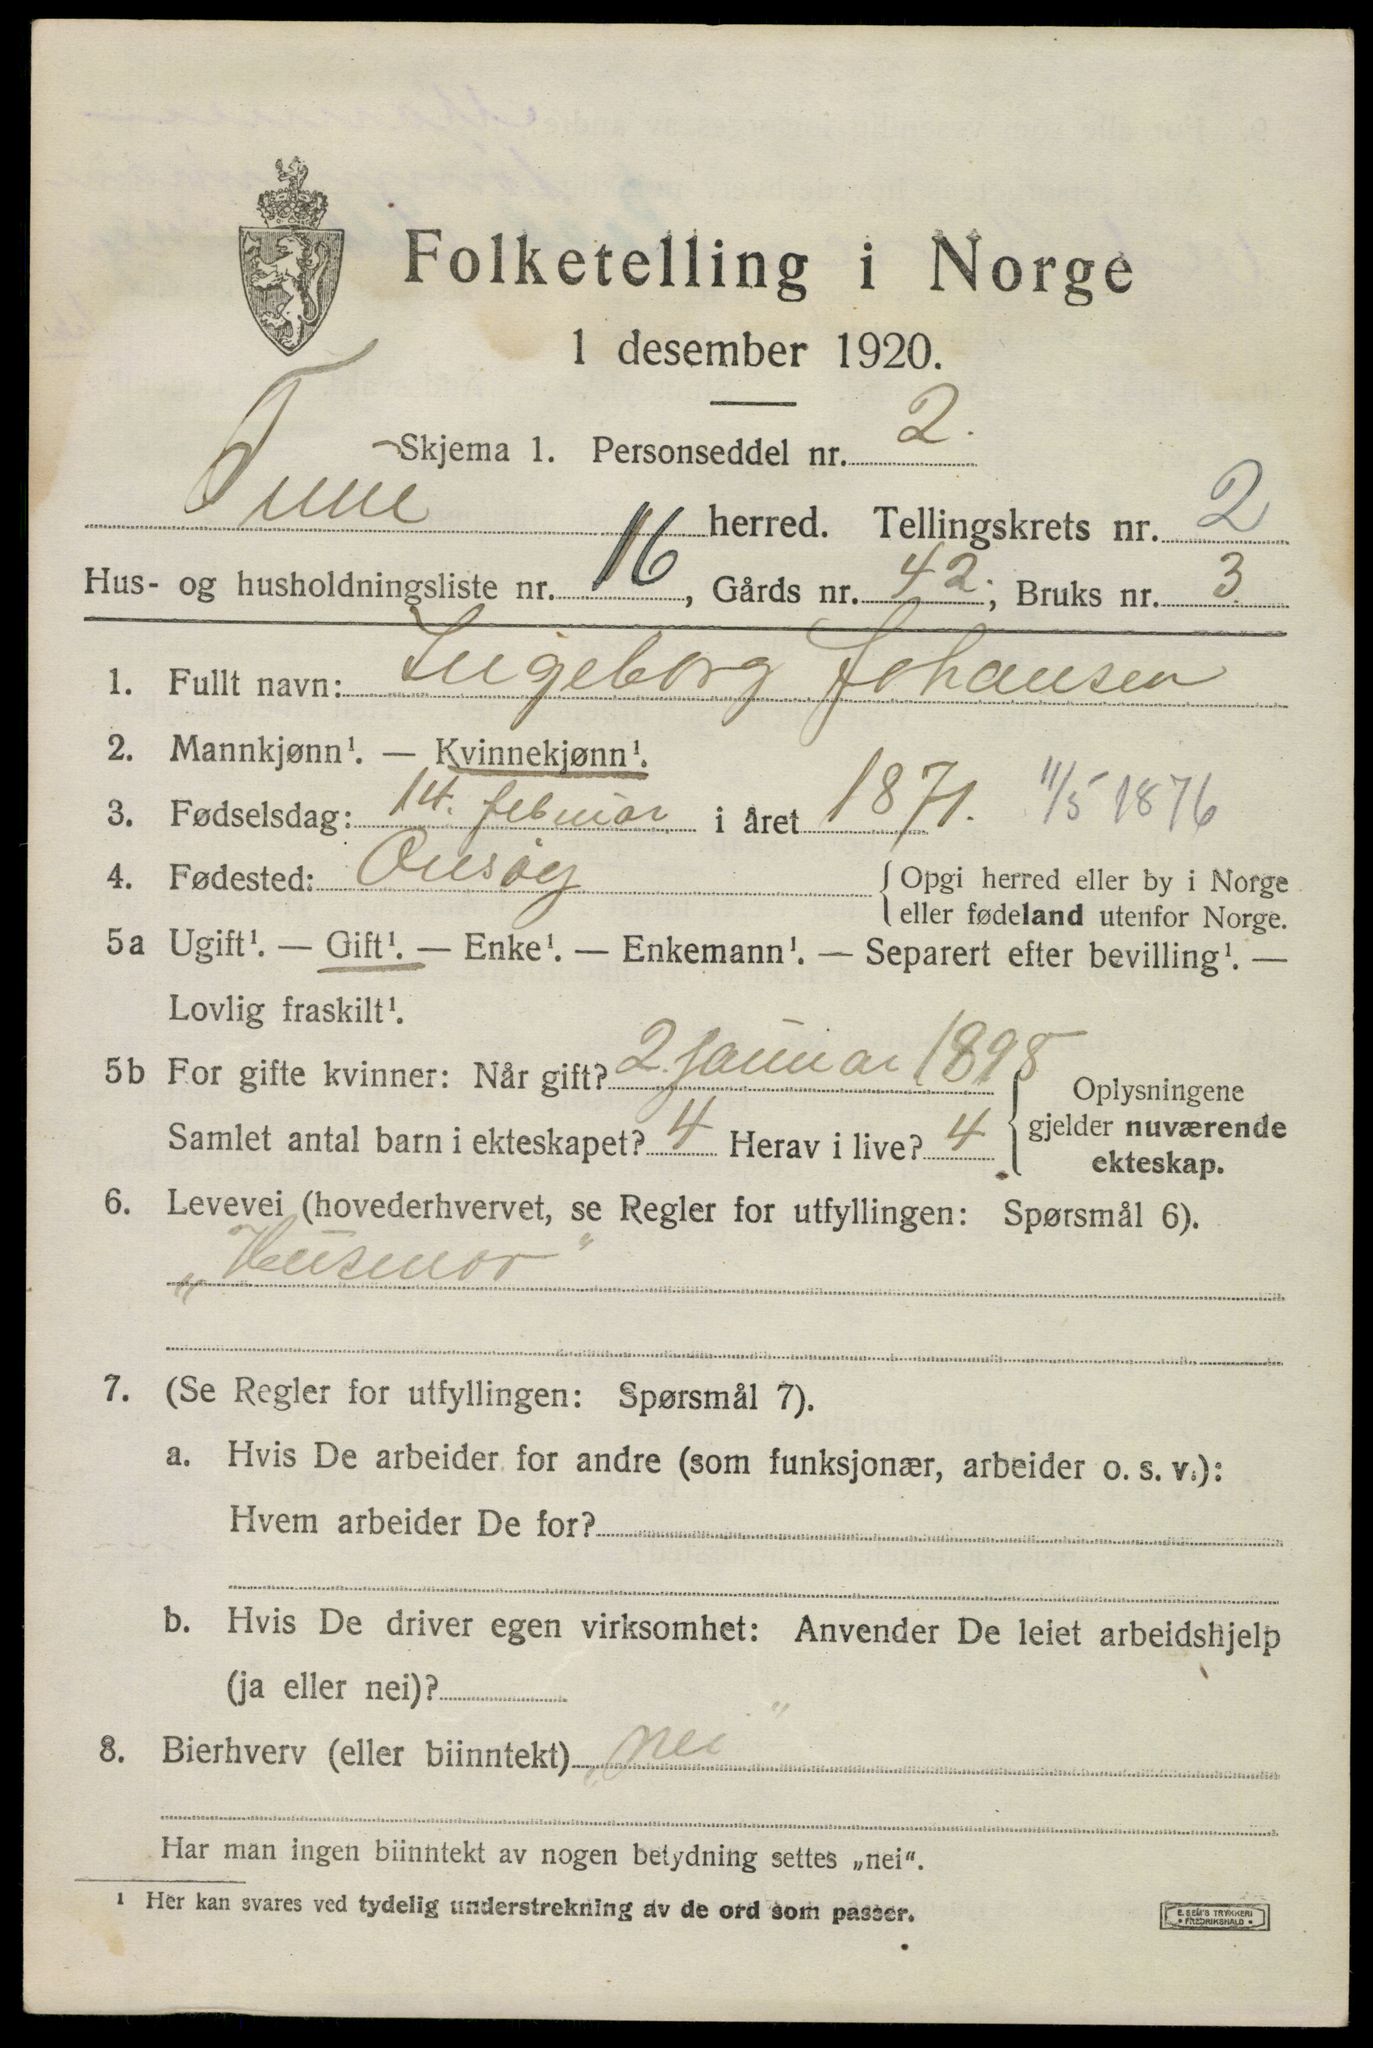 Folketelling i Norge
1 desember 1920.
Skjema 1. Personseddel nr. 2.
Tune herred. Tellingskrets nr. 2
Hus- og husholdningsliste nr. 16, Gårds nr. 42; Bruks nr. 3
1. Fullt navn: Ingeborg Johansen
2. Mannkjønn¹. — Kvinnekjønn¹.
3. Fødselsdag: 14. februar i året 1871. 11/5 1876
4. Fødested: Onsøy { Opgi herred eller by i Norge
eller fødeland utenfor Norge.
5a Ugift¹. — Gift¹. — Enke¹. — Enkemann¹. — Separert efter bevilling¹. —
Lovlig fraskilt¹.
5b For gifte kvinner: Når gift? 2 januar 1898
Samlet antal barn i ekteskapet? 4 Herav i live? 4
{ Oplysningene
gjelder nuværende
ekteskap.
6. Levevei (hovederhvervet, se Regler for utfyllingen: Spørsmål 6).
„Husmor"
7. (Se Regler for utfyllingen: Spørsmål 7).
a. Hvis De arbeider for andre (som funksjonær, arbeider o. s. v.):
Hvem arbeider De for?
b. Hvis De driver egen virksomhet: Anvender De leiet arbeidshjelp
(ja eller nei)?
8. Bierhverv (eller biinntekt) „nei"
Har man ingen biinntekt av nogen betydning settes „nei“.
¹ Her kan svares ved tydelig understrekning av de ord som passer.
E. SEM'S TRYKKERI
• FREDRIKSHALD •